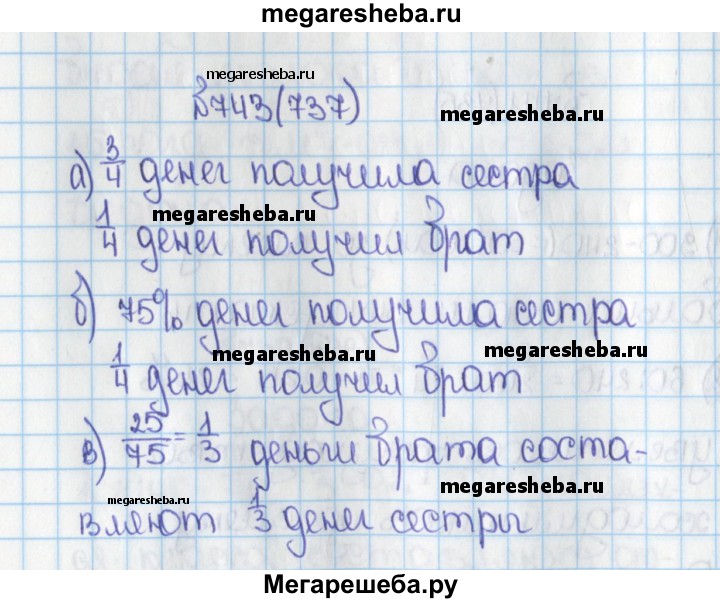 megaresheba.ru
megaresheba.ru
№743(737)
megaresheba.ru
а) 3/4 денег получила сестра
megaresheba.ru
1/4 денег получил брат
б) 75% денег получила сестра
megaresheba.ru
megaresheba.ru
1/4 денег получил брат
в) 25/75 = 1/3 деньги брата соста-
megaresheba.ru
megaresheba.ru
вляют 1/3 денег сестры
Мегарешеба.ру